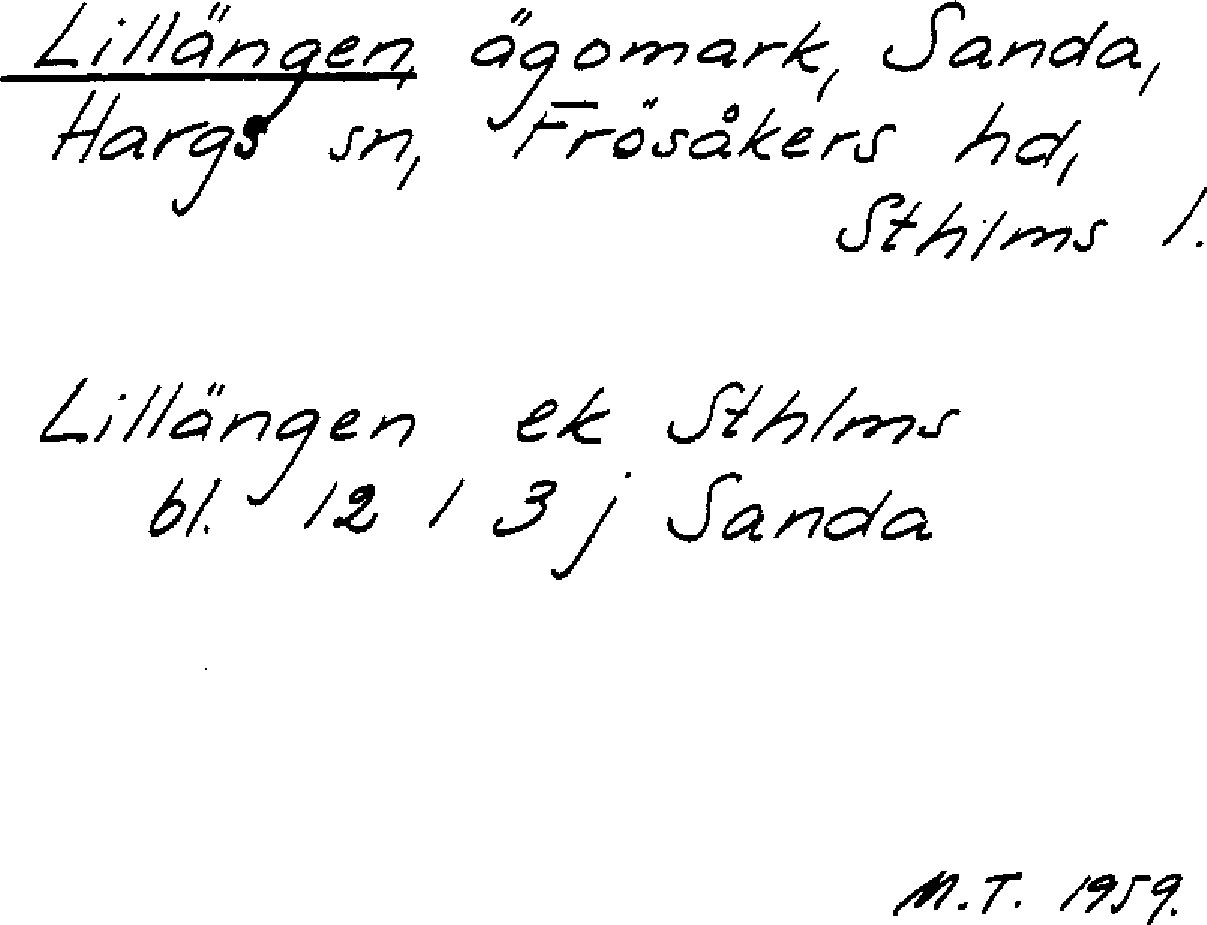 Lillängen, ägomark, Sanda,
Hargs sn, Frösåkers hd,
Sthlms l.
Lillängen ek Sthlms
bl. 12 1 3 j Sanda
M.T. 1959.